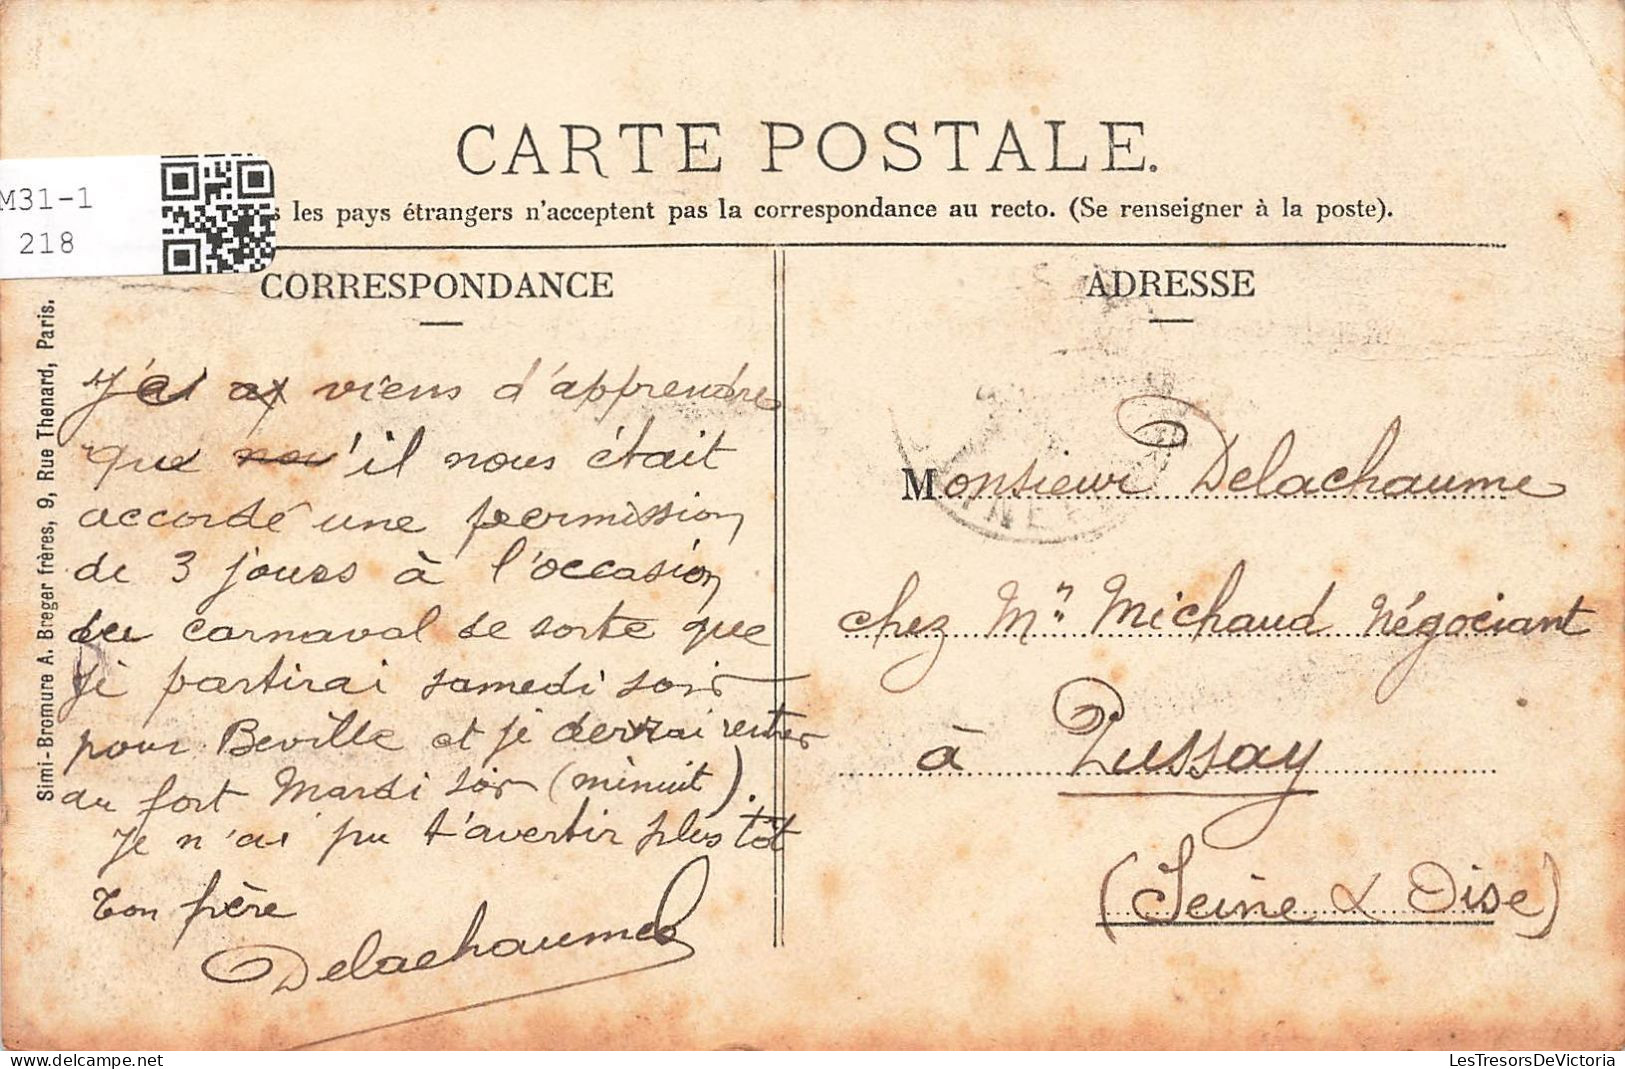 CARTE POSTALE.
M31-1
218
les pays étrangers n'acceptent pas la correspondance au recto. (Se renseigner à la poste).
CORRESPONDANCE
J'ai viens d'apprendre
que 'il nous était
accordé une permission
de 3 jours à l'occasion
du carnaval de sorte que
je partirai samedi soir
pour Beville et je devrai rentrer
au fort Mardi soir (minuit).
Je n'ai pu t'avertir plus tôt
Ton frère
Delachaume
Simi-Bromure A. Breger frères, 9, Rue Thenard, Paris.
ADRESSE
Monsieur Delachaume
chez Mr Michaud Négociant
à Pussay
(Seine & Oise)
LesTresorsDeVictoria